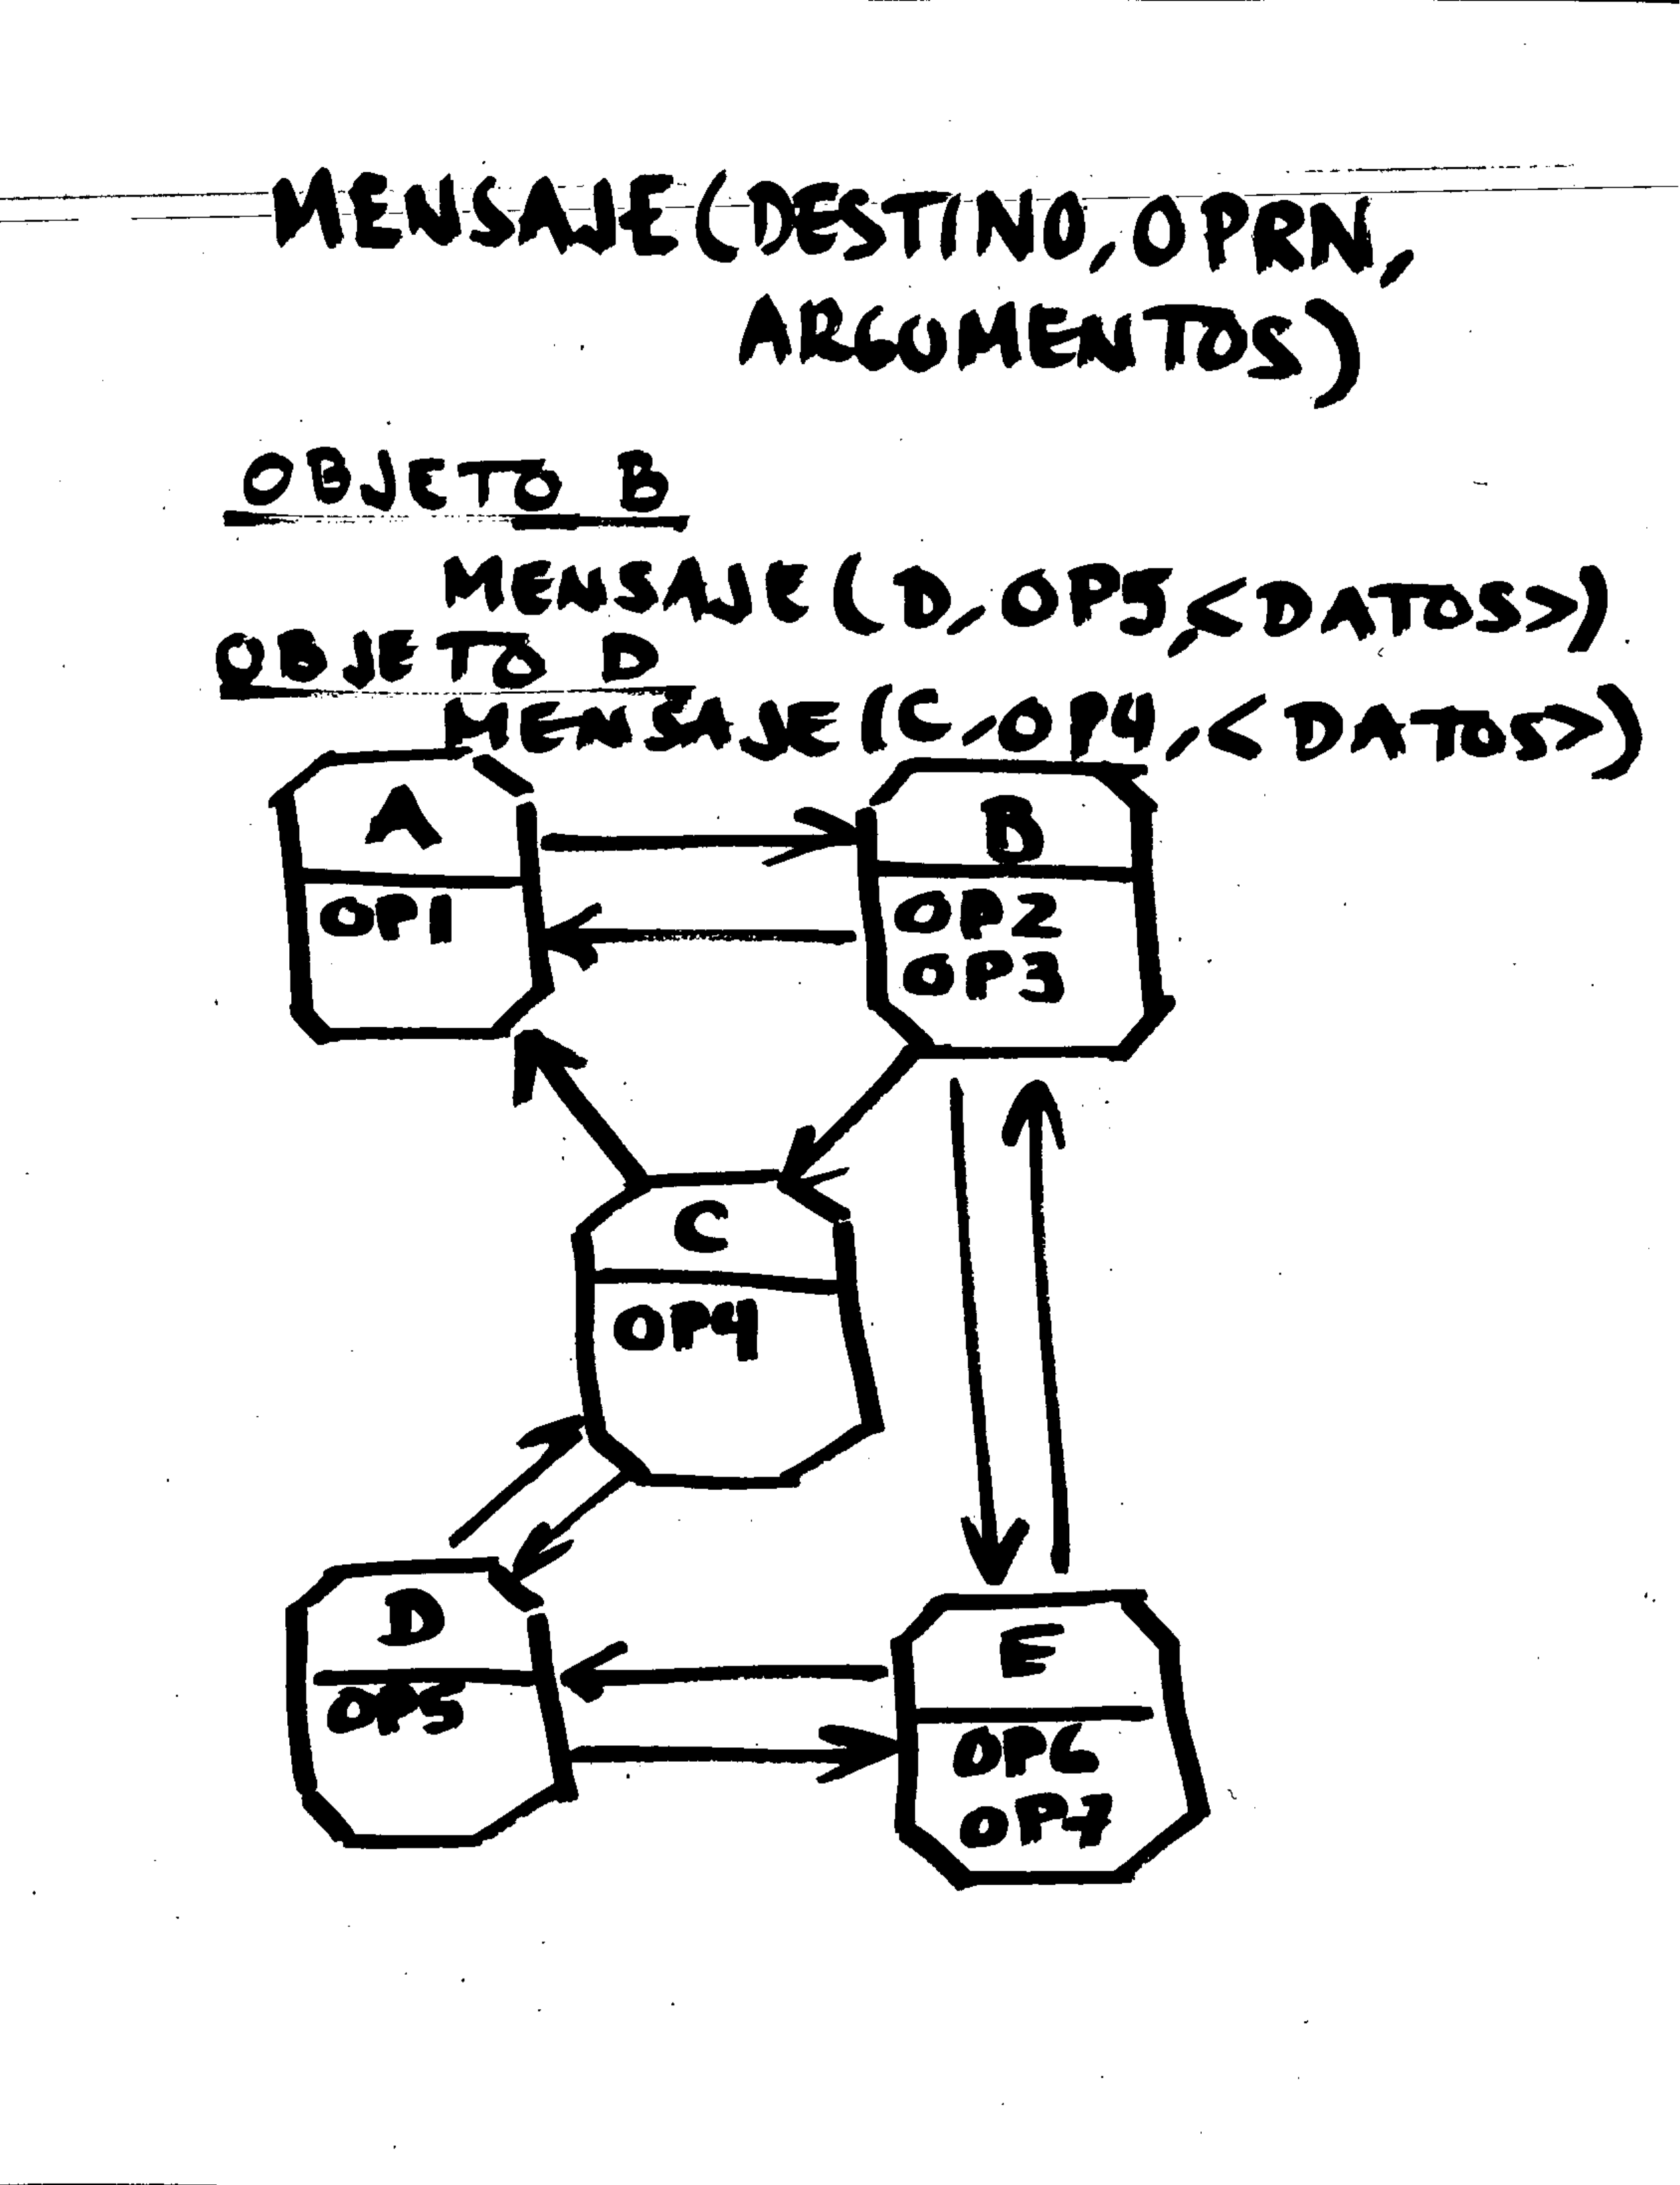 MENSAJE(DESTINO, OPRN,
ARGUMENTOS)
OBJETO B
MENSAJE(D, OP5,<DATOS>)
OBJETO D
MENSAJE(C, OP4,<DATOS>)
A
OP1
B
OP2
OP3
C
OP4
D
OP5
E
OP6
OP7